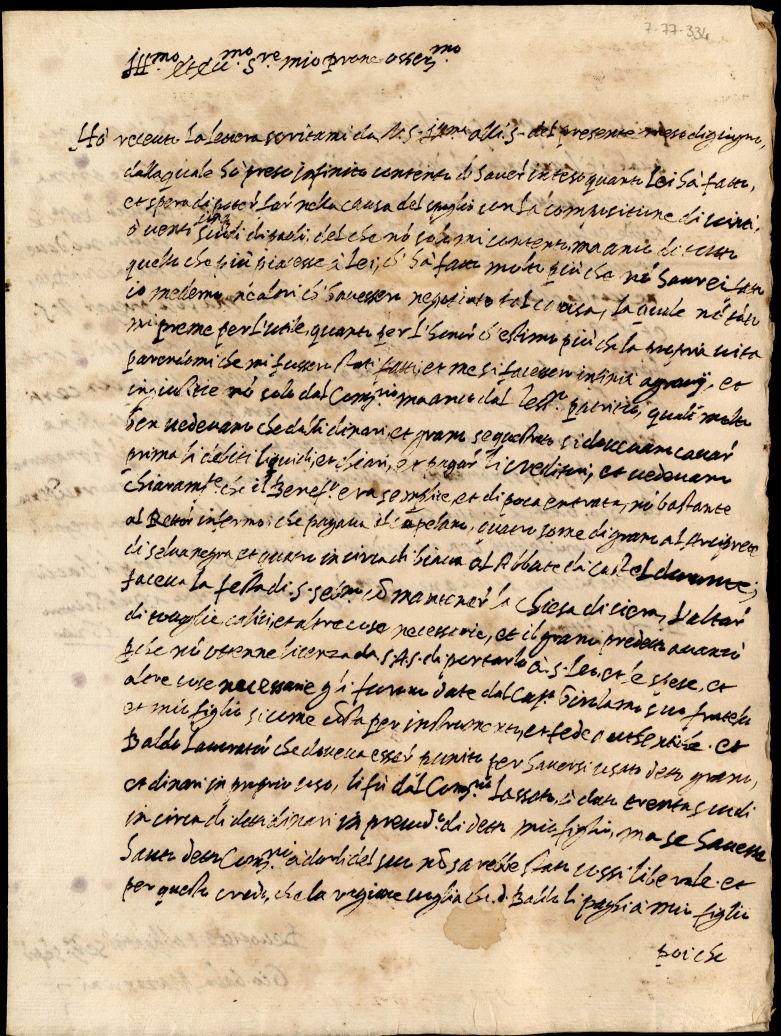 7-77-334
Ill.mo et Ecc.mo S.re mio p̱rone osser.mo
Hò receuto la lettera scrittami da V.S. Ill.ma alli 5. del presente mese di giugno,
dalla quale hò preso infinito contento d'hauer inteso quanto lei hà fatto,
et spera di poter far nella causa del spoglio con la compositione di
ò uenti scudi di paoli, del che nò solo mi contento, ma anco di tutto
quello che più piacesse à lei, ch'hà fatto molto più che nò haurei fatto
io medemo, nè altri ch'hauesse negotiato tal causa, la quale nò tāto
mi preme per l'utile, quanto per l'honor ch'estimo più che la propria uita
parendomi che mi fussero stati fatti, et me si facesser infiniti agrauij, et
ingiustitie nò solo dal Com̄.rio ma anco dal patritio, quali molto
ben uedeuano che dalli dinari, et grano sequestrato si doueuan cauar
prima li debiti liquidi, et chiari, et pagar li creditori, et uedeuano
chiaram.te che il Benef.o era semplice, et di poca entrata, nò bastante
al Rettor infermo, che pagaua il capelano, quatro some di grano al Arciprete
di seluanegra et quatro in circa di biaua al Abbate di Castel durante,
faceua la festa di S. con mantener la chiesa di cera, l'altar
di touaglie, calici, et altre cose necessarie, et il grano predetto auanzò
p̱che nò ottenne licenza da S.A.S. di portarlo à S. Leo, et le spese, et
altre cose necessarie gli furono date dal Cap.o Girolamo suo fratello
et mio figlio si come cōsta per instrumento, et fede autentiche. et
Baldo Lauorator che doueua esser punito per hauersi usato detto grano,
et dinari in proprio uso, li fù dal Com̄.rio lassato, ò dato trenta scudi
in circa di detti dinari in preiud.o di detto mio figlio, ma se hauesse
hauto detto Com̄.rio à darli del suo nò sarebbe stato cossi liberale. et
per questo credo, che la ragione uoglia che d. Baldo li paghi à mio figlio
poiche